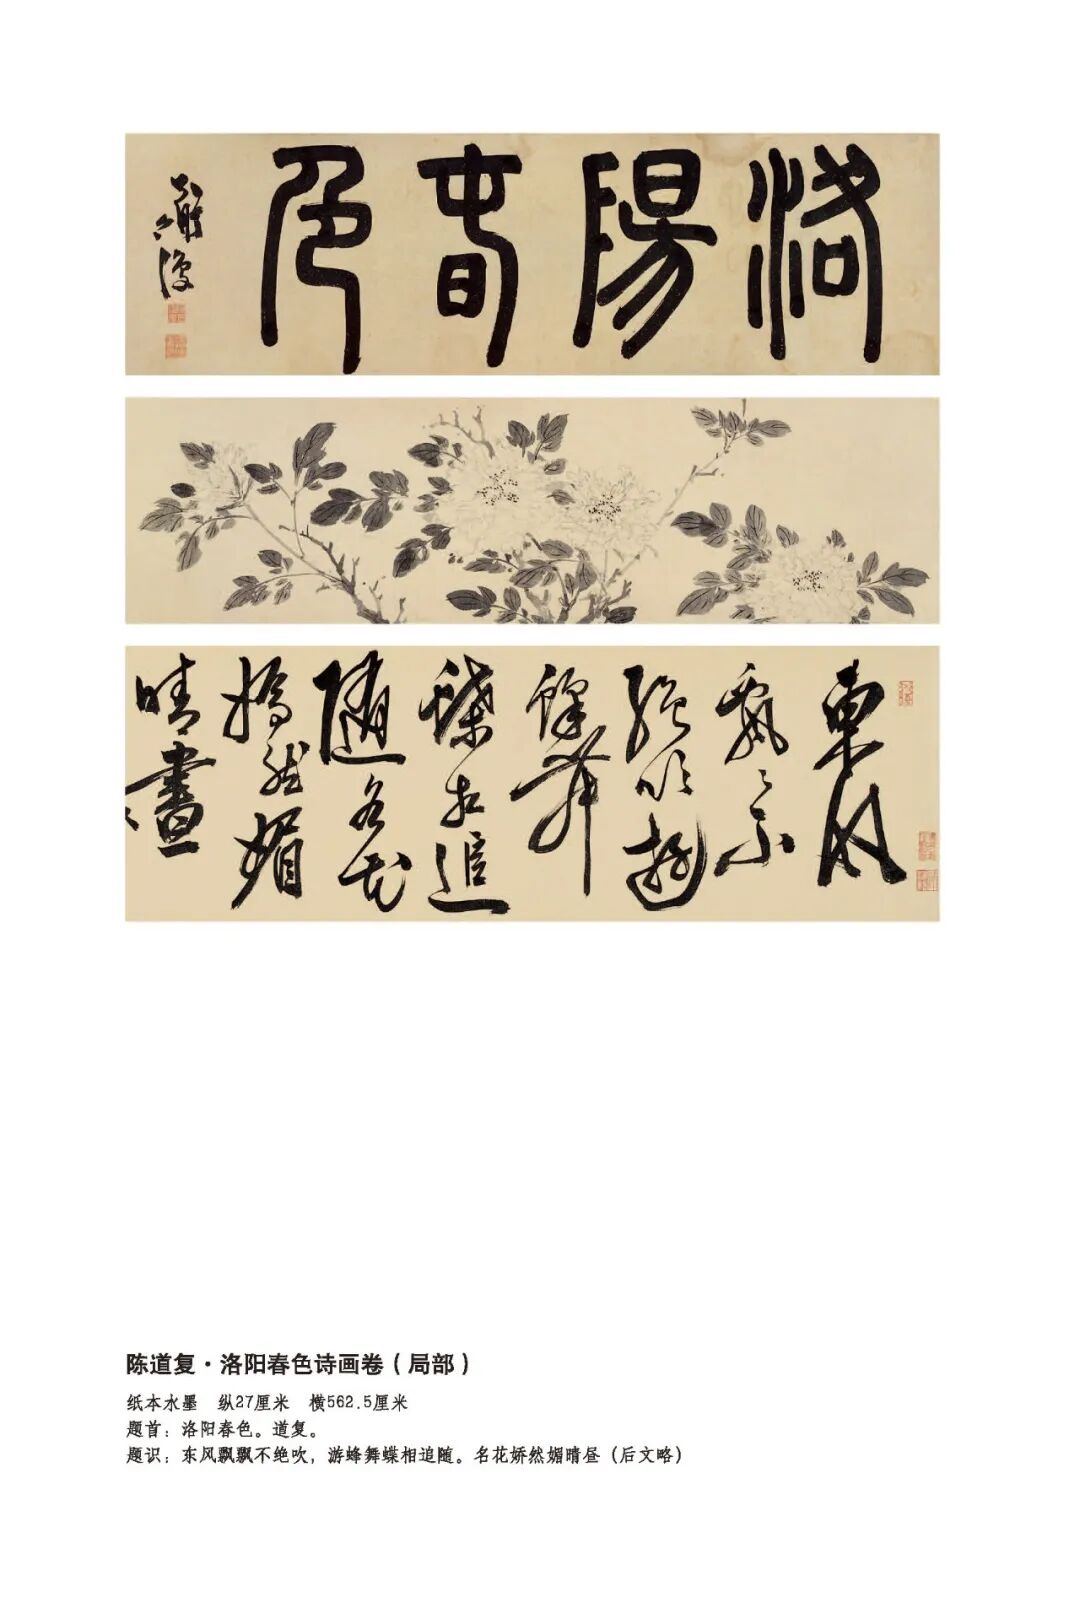 洛陽春色
道復
東風
飄〻不
絕吹遊
蜂舞
蝶相追
隨名花
嬌然媚
晴晝
陈道复·洛阳春色诗画卷（局部）
纸本水墨　纵27厘米　横562.5厘米
题首：洛阳春色。道复。
题识：东风飘飘不绝吹，游蜂舞蝶相追随。名花娇然媚晴昼（后文略）